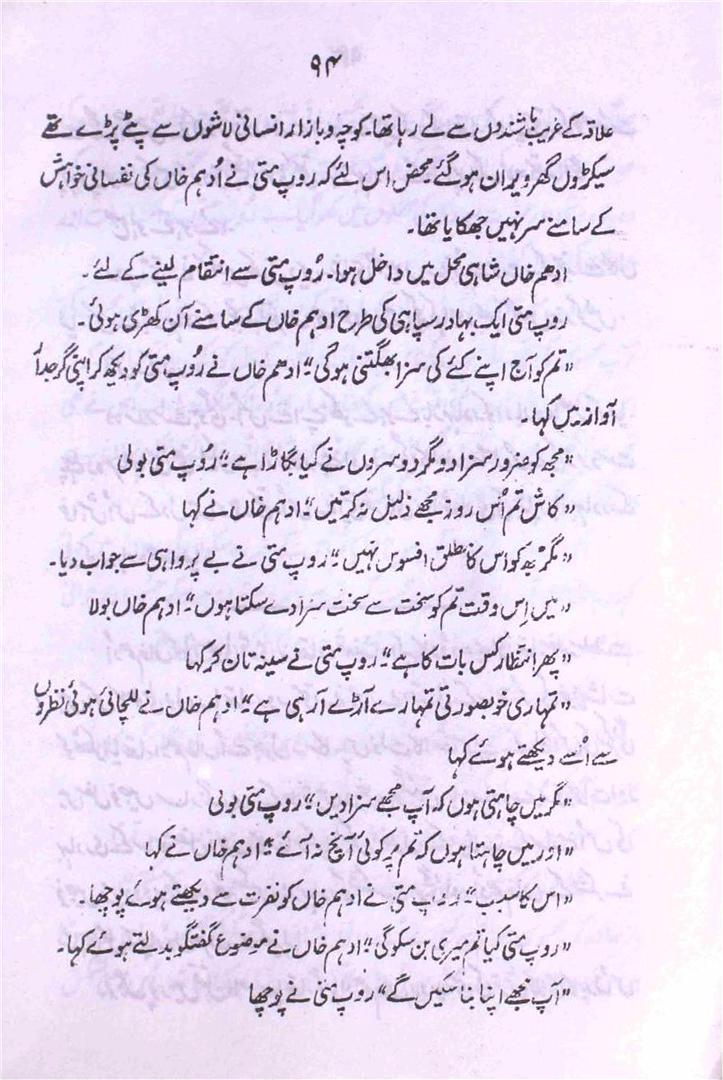 ۹۴
علاقہ کے غریب باشندوں سے لے رہا تھا۔ کوچہ و بازار انسانی لاشوں سے پٹے پڑے تھے
سیکڑوں گھر ویران ہو گئے۔ محض اس لئے کہ روپ متی نے اُدہم خاں کی نفسانی خواہش
کے سامنے سر نہیں جھکایا تھا۔
ادھم خاں شاہی محل میں داخل ہوا۔ رُوپ متی سے انتقام لینے کے لئے۔
روپ متی ایک بہادر سپاہی کی طرح ادہم خاں کے سامنے آن کھڑی ہوئی۔
”تم کو آج اپنے کئے کی سزا بھگتنی ہوگی“ ادھم خاں نے رُوپ متی کو دیکھ کر اپنی گرجدار
آواز میں کہا۔
”مجھ کو ضرور سزا دو مگر دوسروں نے کیا بگاڑا ہے“ رُوپ متی بولی
”کاش تم اُس روز مجھے ذلیل نہ کرتیں“ ادہم خاں نے کہا
”مگر مجھ کو اس کا مطلق افسوس نہیں“ روپ متی نے بے پرواہی سے جواب دیا۔
”میں اِس وقت تم کو سخت سے سخت سزا دے سکتا ہوں“ ادہم خاں بولا
”پھر انتظار کس بات کا ہے“ روپ متی نے سینہ تان کر کہا
”تمہاری خوبصورتی تمہارے آڑے آ رہی ہے“ ادہم خاں نے للچائی ہوئی نظروں
سے اُسے دیکھتے ہوئے کہا
”مگر میں چاہتی ہوں کہ آپ مجھے سزا دیں“ روپ متی بولی
”اور میں چاہتا ہوں کہ تم پر کوئی آنچ نہ آئے“ ادہم خاں نے کہا
”اس کا سبب“ روپ متی نے ادہم خاں کو نفرت سے دیکھتے ہوئے پوچھا۔
”روپ متی کیا تم میری بن سکو گی“ ادہم خاں نے موضوع گفتگو بدلتے ہوئے کہا۔
”آپ مجھے اپنا بنا سکیں گے“ روپ متی نے پوچھا